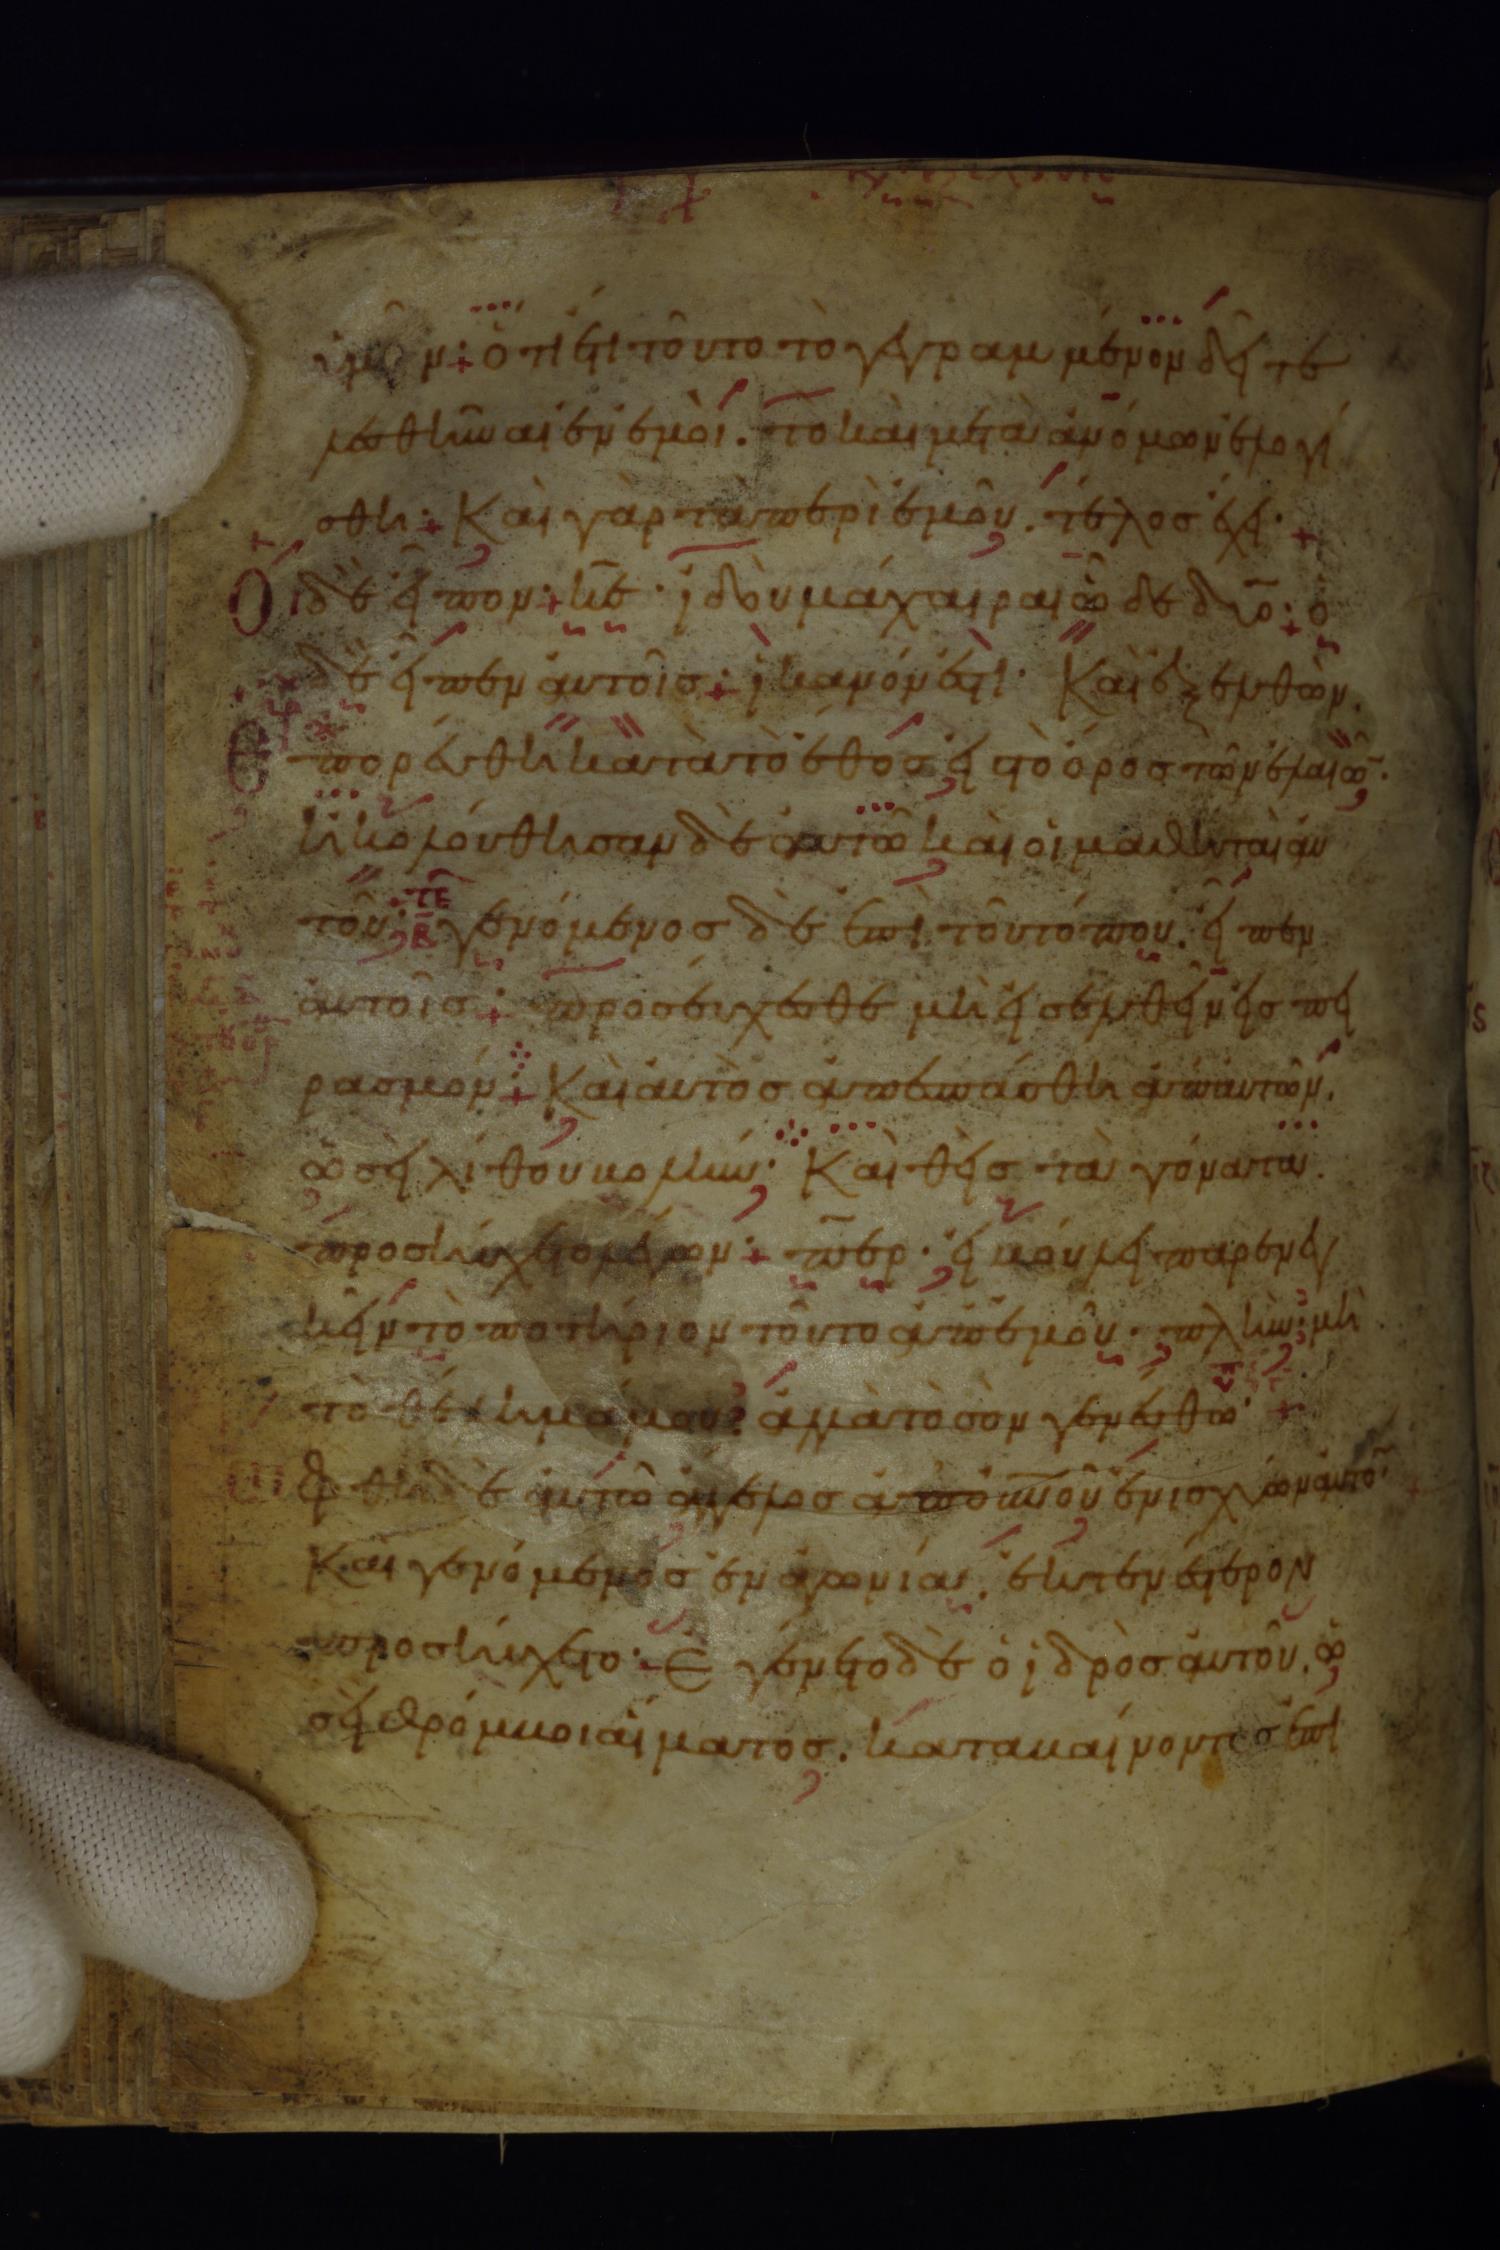 ὑμῖν· ὅτι ἔτι τοῦτο τὸ γεγραμμένον δεῖ τε
λεσθῆναι ἐν ἐμοὶ. τὸ καὶ μετὰ ἀνόμων ἐλογί
σθη· Καὶ γὰρ τὰ περὶ ἐμοῦ. τέλος ἔχει·
Οἱ δὲ εἶπον· κε· ἰδοὺ μάχαιραι ὧδε δύο· ὁ
δὲ εἶπεν αὐτοῖς· ἱκανόν ἐστι· Καὶ ἐξελθὼν.
ἐπορεύθη κατὰ τὸ ἔθος εἰς τὸ ὄρος τῶν ἐλαιῶ·
ἠκολούθησαν δὲ αὐτῶ καὶ οἱ μαθηταὶ αὐ
τοῦ· γενόμενος δὲ ἐπὶ τοῦ τόπου. εἶπεν
αὐτοῖς· προσεύχεσθε μὴ εἰσελθεῖν εἰς πει
ρασμόν· Καὶ αὐτὸς ἀπεσπάσθη ἀπ' αὐτῶν.
ὡσεὶ λίθου βολήν· Καὶ θεὶς τὰ γόνατα.
προσηύχετο λέγων· περ· εἰ βούλει παρενεγ
κεῖν τὸ ποτήριον τοῦτο ἀπ' ἐμοῦ· πλὴν μὴ
τὸ θέλημά μου· ἀλλὰ τὸ σὸν γενέσθω·
Ὤφθη δὲ αὐτῶ ἄγγελος ἀπὸ οὐνοῦ ἐνισχύων αὐτὸ·
Καὶ γενόμενος ἐν ἀγωνία. ἐκτενέστερον
προσηύχετο· Ἐγένετο δὲ ὁ ἱδρὸς αὐτοῦ. ὡ
σεὶ θρόμβοι αἵματος. καταβαίνοντες ἐπὶ